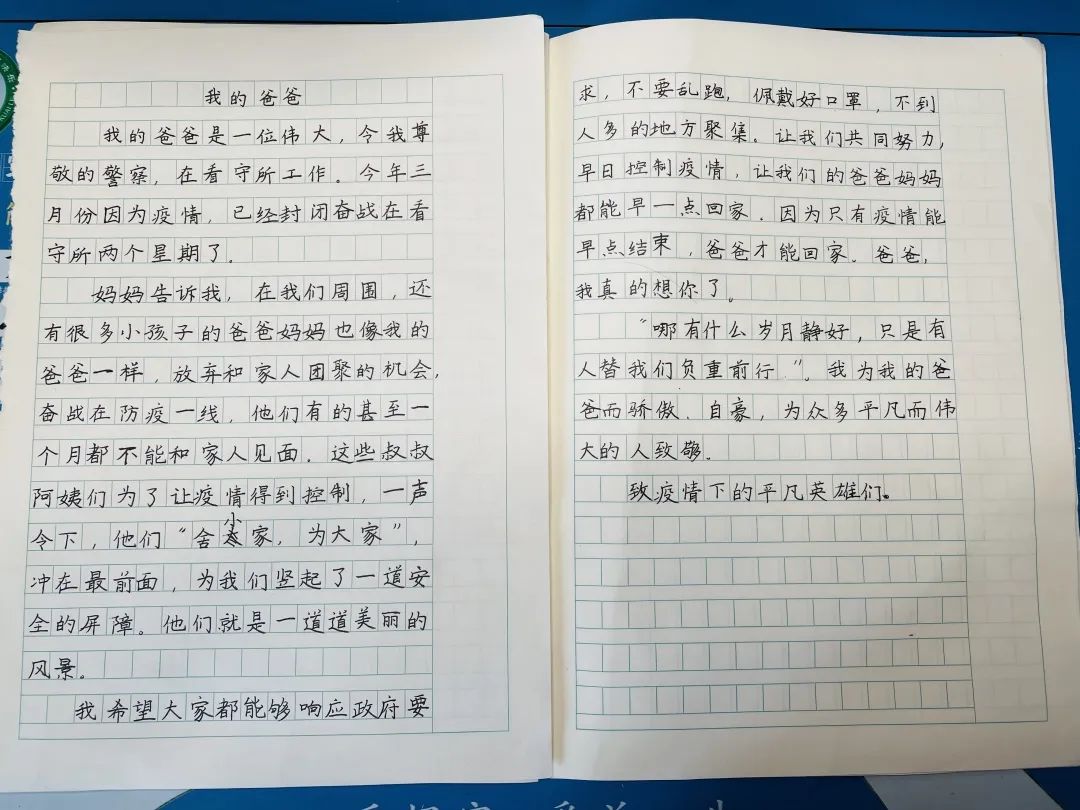 我的爸爸
我的爸爸是一位伟大,令我尊
敬的警察,在看守所工作。今年三
月份因为疫情,已经封闭奋战在看
守所两个星期了.
妈妈告诉我,在我们周围,还
有很多小孩子的爸爸妈妈也像我的
爸爸一样,放弃和家人团聚的机会,
奋战在防疫一线,他们有的甚至一
个月都不能和家人见面.这些叔叔
阿姨们为了让疫情得到控制,一声
令下,他们“舍小家,为大家”,
冲在最前面,为我们竖起了一道安
全的屏障。他们就是一道道美丽的
风景。
我希望大家都能够响应政府要
求,不要乱跑,佩戴好口罩,不到
人多的地方聚集。让我们共同努力,
早日控制疫情,让我们的爸爸妈妈
都能早一点回家.因为只有疫情能
早点结束,爸爸才能回家.爸爸,
我真的想你了。
“哪有什么岁月静好,只是有
人替我们负重前行.”。我为我的爸
爸而骄傲.自豪,为众多平凡而伟
大的人致敬.
致疫情下的平凡英雄们。